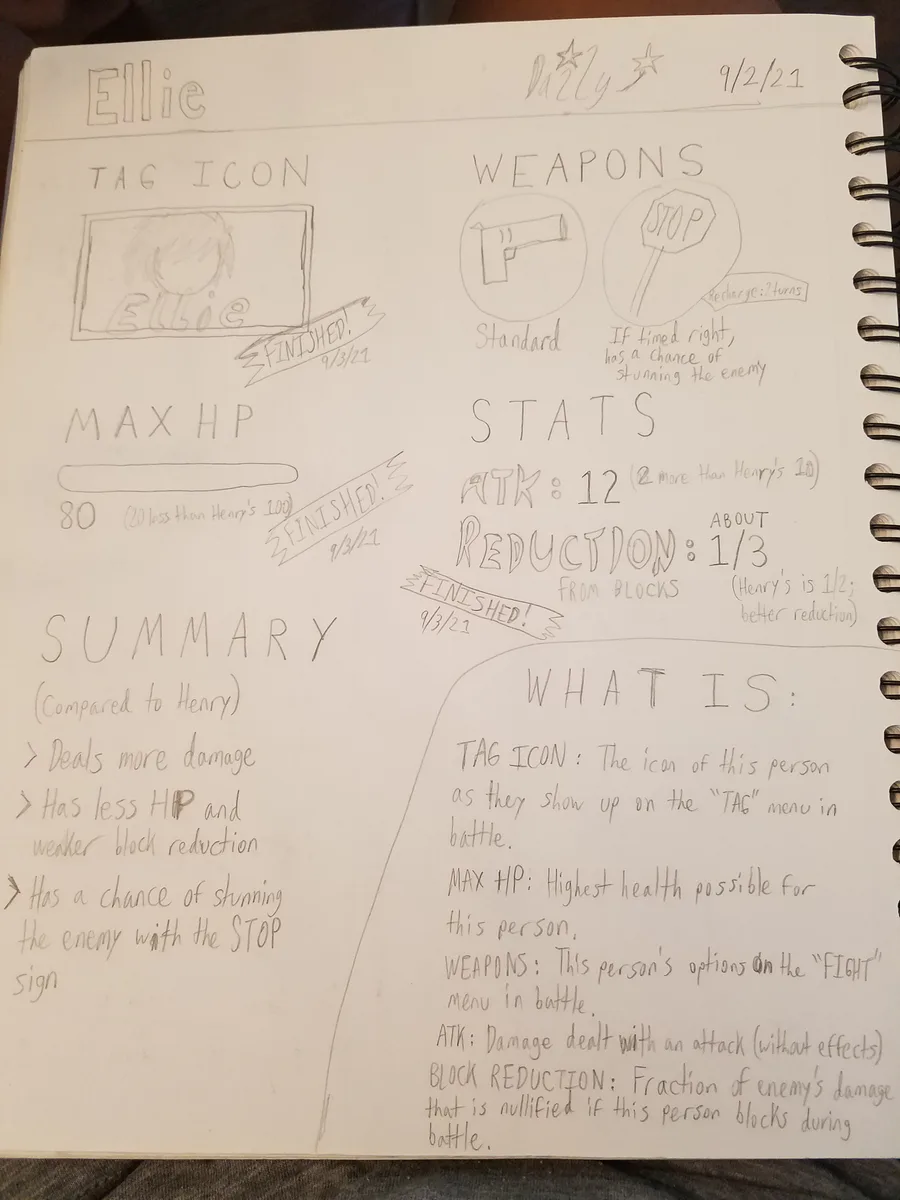 Ellie
Dazzly
9/2/21
TAG ICON
Ellie
FINISHED!
9/3/21
WEAPONS
STOP
Recharge: 2 turns
Standard
If timed right,
has a chance of
stunning the enemy
MAX HP
80 (20 less than Henry's 100)
FINISHED!
9/3/21
STATS
ATK: 12 (2 more than Henry's 10)
REDUCTION: ABOUT 1/3
FROM BLOCKS
(Henry's is 1/2;
better reduction)
FINISHED!
9/3/21
SUMMARY
(Compared to Henry)
> Deals more damage
> Has less HP and
weaker block reduction
> Has a chance of stunning
the enemy with the STOP
sign
WHAT IS:
TAG ICON: The icon of this person
as they show up on the "TAG" menu in
battle.
MAX HP: Highest health possible for
this person.
WEAPONS: This person's options on the "FIGHT"
menu in battle.
ATK: Damage dealt with an attack (without effects)
BLOCK REDUCTION: Fraction of enemy's damage
that is nullified if this person blocks during
battle.